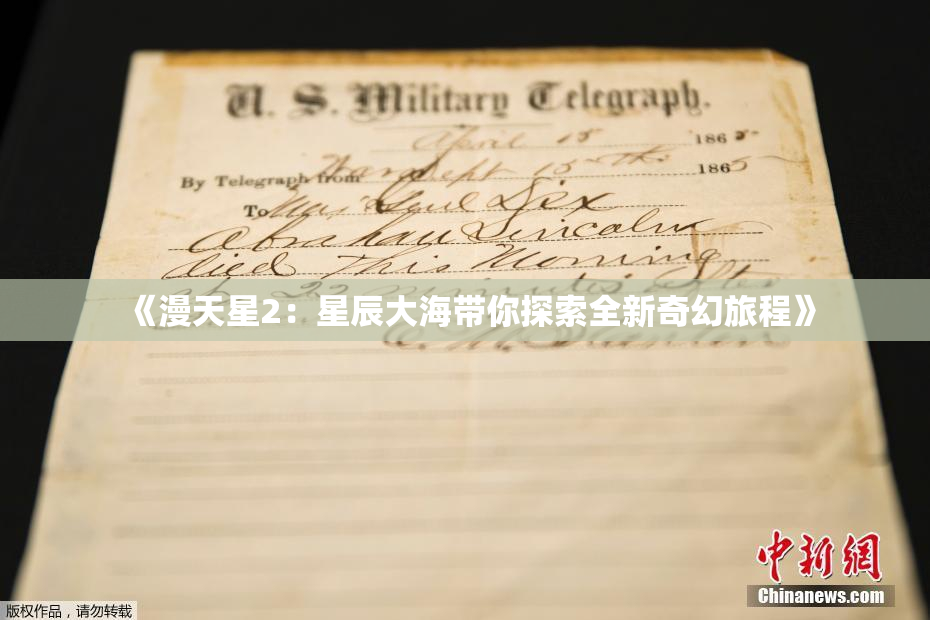 U. S. Military Telegraph.
April 15 1865
By Telegraph from War Dept 15th 1865
To Maj Genl Dix
Abraham Lincoln
died This Morning
at 22 minutes after
《漫天星2：星辰大海带你探索全新奇幻旅程》
中新网
Chinanews.com
版权作品，请勿转载